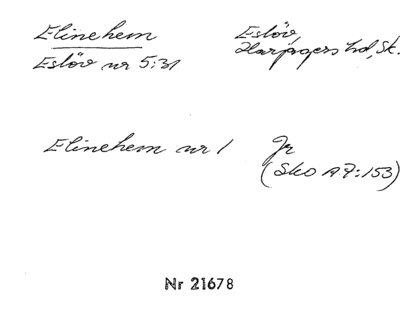 Elinehem
Eslöv nr 5:31
Eslöv,
Harjagers hd, Sk.
Elinehem nr 1
Jr
(Sko A.7:153)
Nr 21678